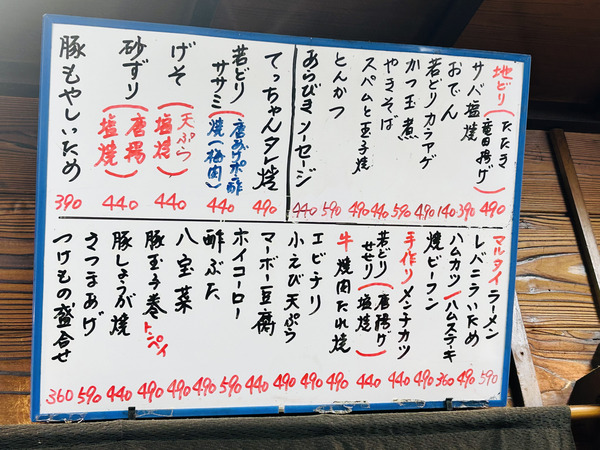 地どり(たたき 竜田揚げ) 490
サバ塩焼 390
おでん 140
若どりカラアゲ 490
かつ玉煮 590
やきそば 440
スパムと玉子焼 490
とんかつ 590
あらびきソーセージ 440
てっちゃんタレ焼 490
若どりササミ(唐あげポン酢 焼(梅肉)) 440
げそ(天ぷら 塩焼) 440
砂ずり(唐揚 塩焼) 440
豚もやしいため 390
マルタイラーメン 590
レバニラいため 490
ハムカツ/ハムステーキ 360
焼ビーフン 490
手作りメンチカツ 440
若どりせせり(唐揚げ 塩焼) 440
牛焼肉たれ焼 490
エビチリ 490
小えび天ぷら 490
マーボー豆腐 440
ホイコーロー 590
酢ぶた 490
八宝菜 490
豚玉子巻トンペイ 490
豚しょうが焼 440
さつまあげ 590
つけもの盛合せ 360